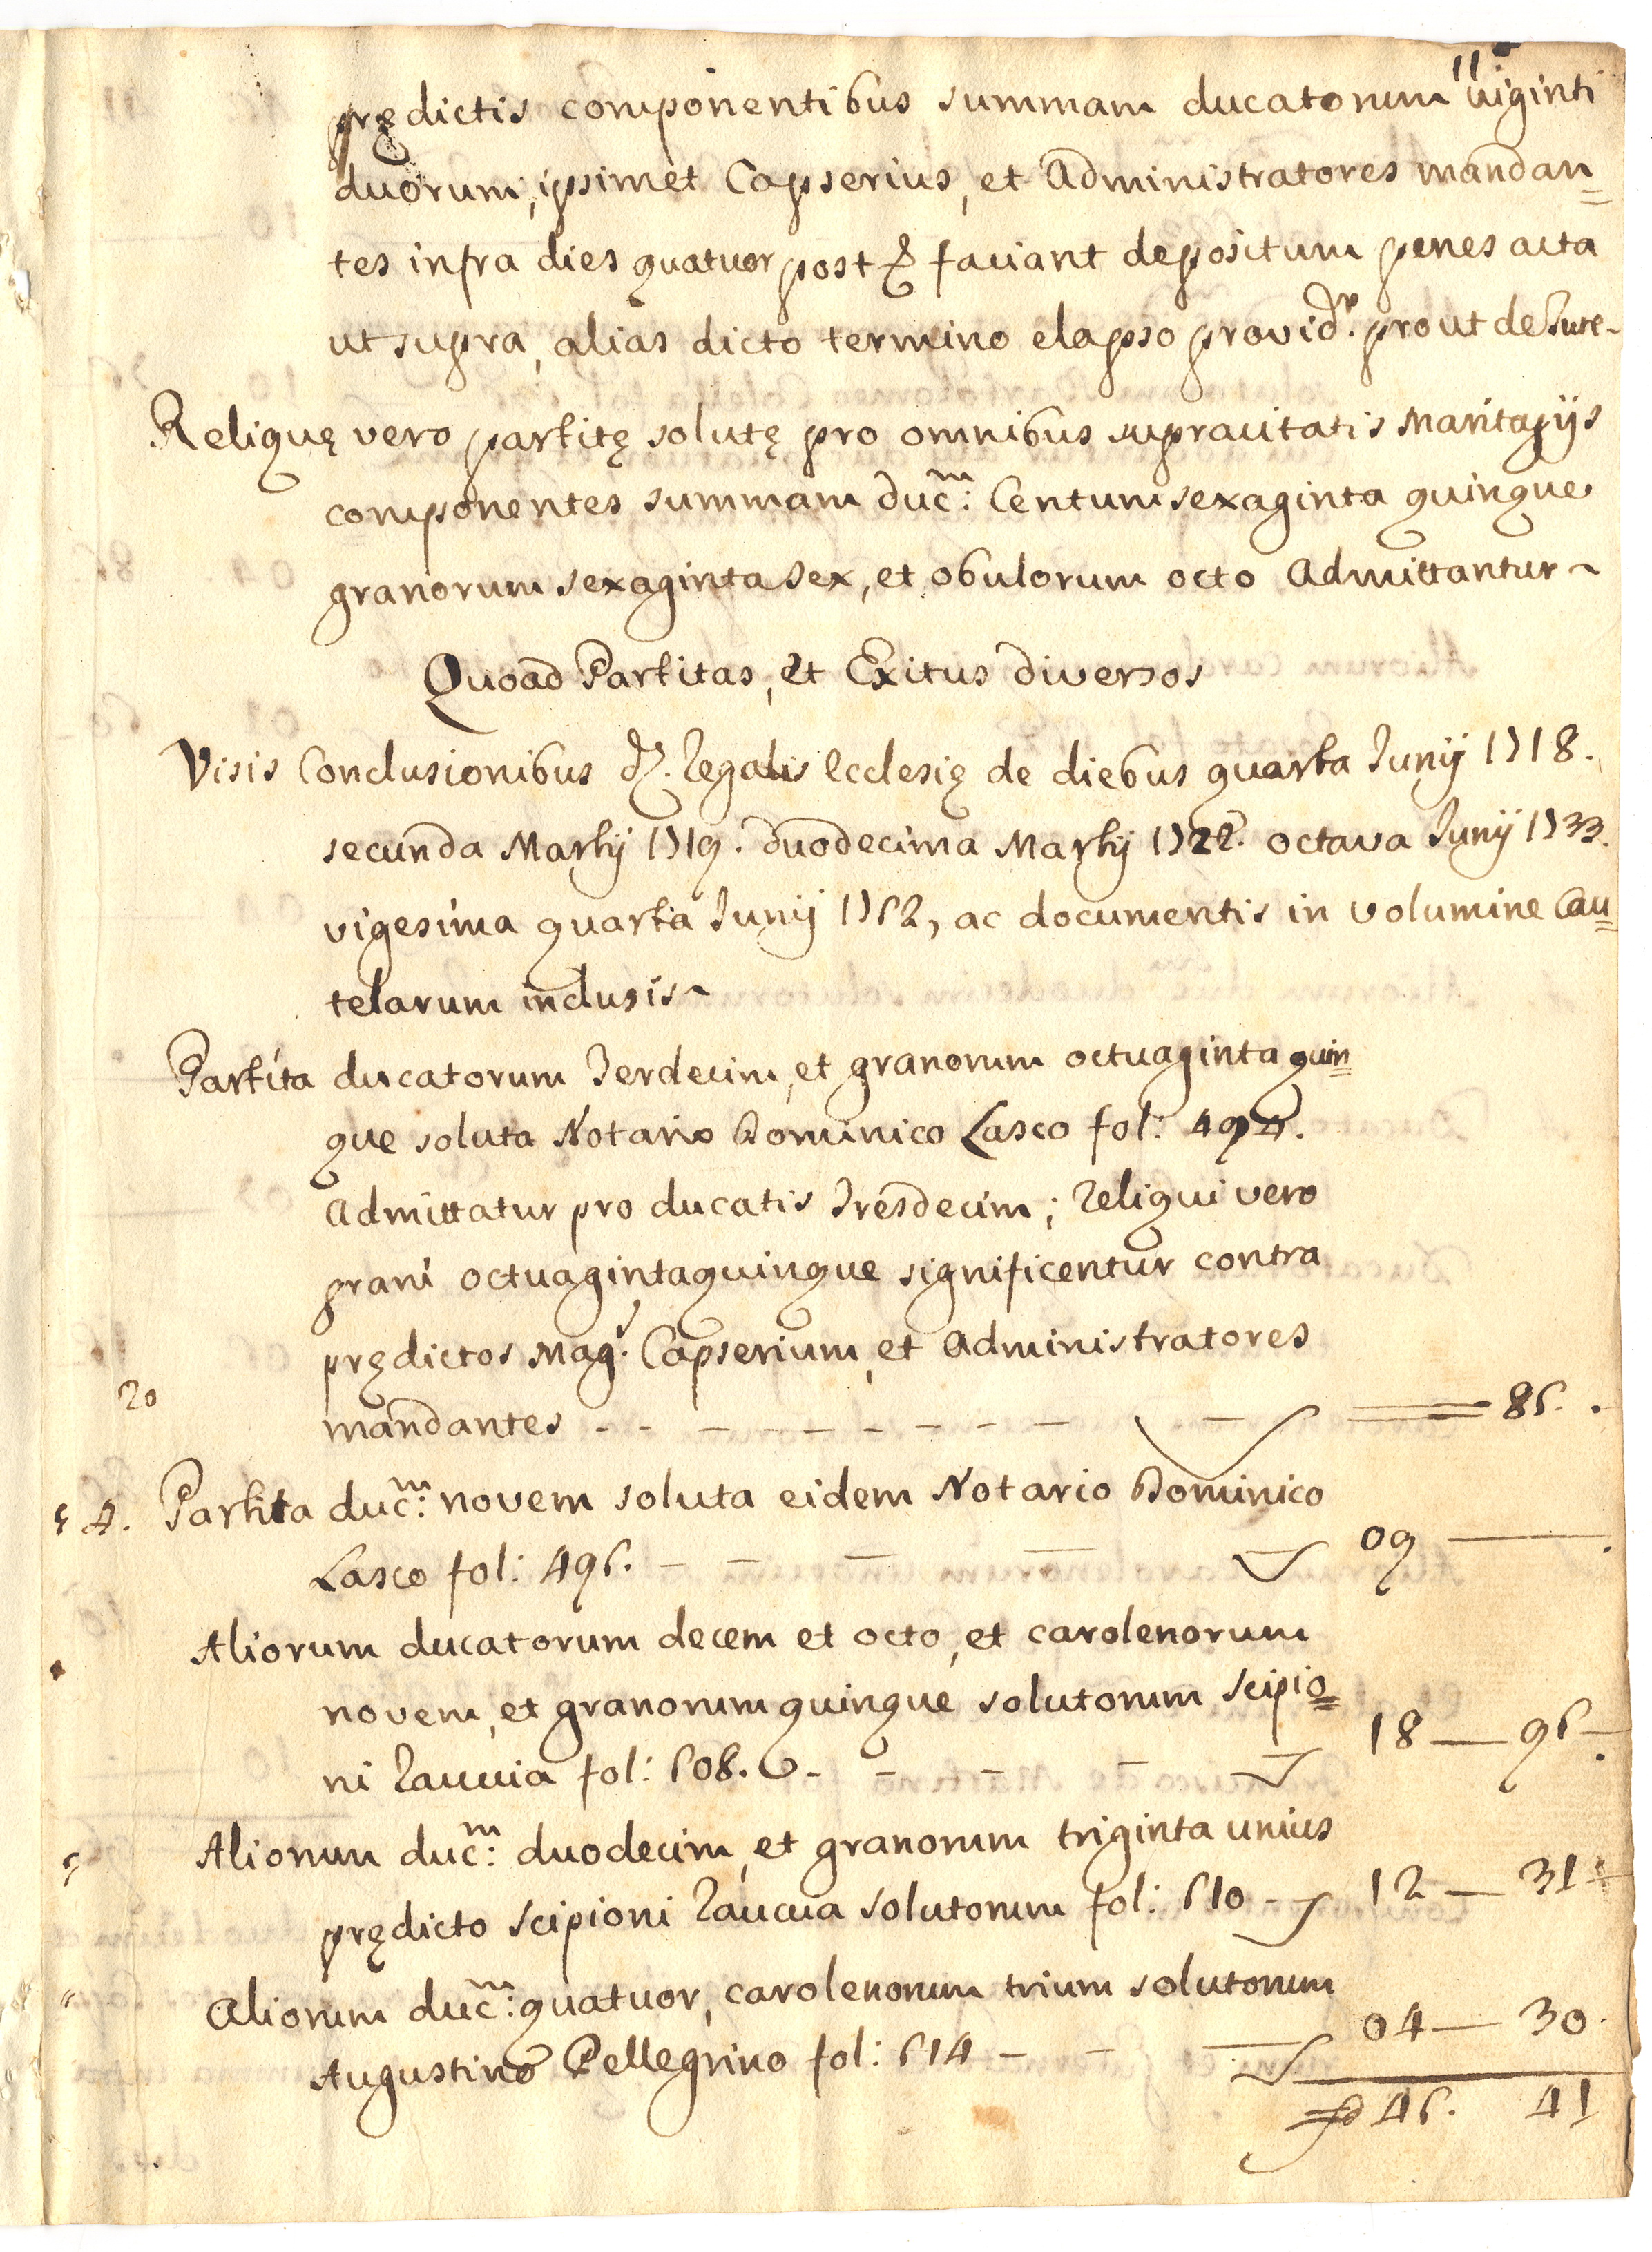 11
prędictis componentibus summam ducatorum viginti
duorum, ipsimet Capserius, et Administratores mandan=
tes infra dies quatuor post faciant depositum penes acta
ut supra, alias dicto termino elapso provid.r prout de Jure
Reliquę vero partitę solutę pro omnibus supracitatis Maritagijs
componentes summam duc.m: Centum sexaginta quinque
granorum sexaginta sex, et obulorum octo Admittantur
Quoad Partitas, et Exitus diversos
Visis Conclusionibus Regalis Ecclesię de diebus quarta Junij 1718.
secunda Martij 1719. duodecima Martij 1722. octava Junij 1733.
vigesima quarta Junij 1752, ac documentis in volumine Cau=
telarum inclusis
Partita ducatorum Terdecim, et granorum octuaginta quin=
que soluta Notario Dominico Lasco fol: 494.
Admittatur pro ducatis Tresdecim; Reliqui vero
grani octuagintaquinque significentur contra
prędictos Mag.s Capserium, et Administratores
20 mandantes - - - - - - - - 85.
4. Partita duc.m: novem soluta eidem Notario Dominico
Lasco fol: 495. - - - - 09 —
Aliorum ducatorum decem et octo, et carolenorum
novem, et granorum quinque solutorum Scipio=
ni Raucia fol: 508. - - - - 18 — 95
Aliorum duc.m: duodecim, et granorum triginta unius
prędicto Scipioni Raucia solutorum fol: 510 - 12 — 31
Aliorum duc.m: quatuor, carolenorum trium solutorum
Augustino Pellegrino fol: 514 - - 04 — 30.
45. 41